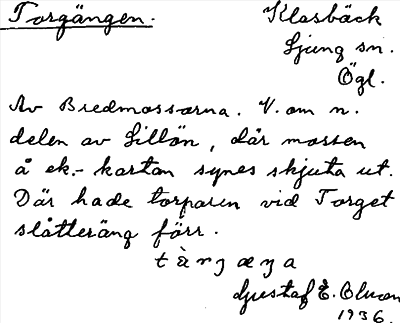 Torgängen.
Klasbäck
Ljung sn.
Ögl.
Av Bredmossarna. V. om n.
delen av Lillön, där mossen
å ek.-kartan synes skjuta ut.
Där hade torparen vid Torget
slåtteräng förr.
Gustaf E. Olson
1936.